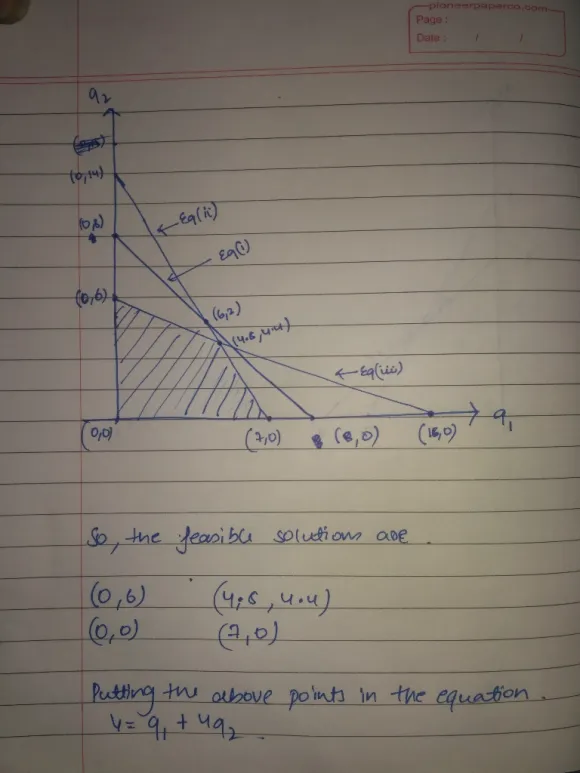 pioneerpaperco.com
Page :
Date : / /
q2
(0,14)
Eq(ii)
(0,8)
Eq(i)
(0,6)
(6,2)
(4.8,4.4)
Eq(iii)
q1
(0,0)
(7,0)
(8,0)
(18,0)
So, the feasible solutions are.
(0,6) (4.8, 4.4)
(0,0) (7,0)
Putting the above points in the equation.
4= q1 + 4q2.